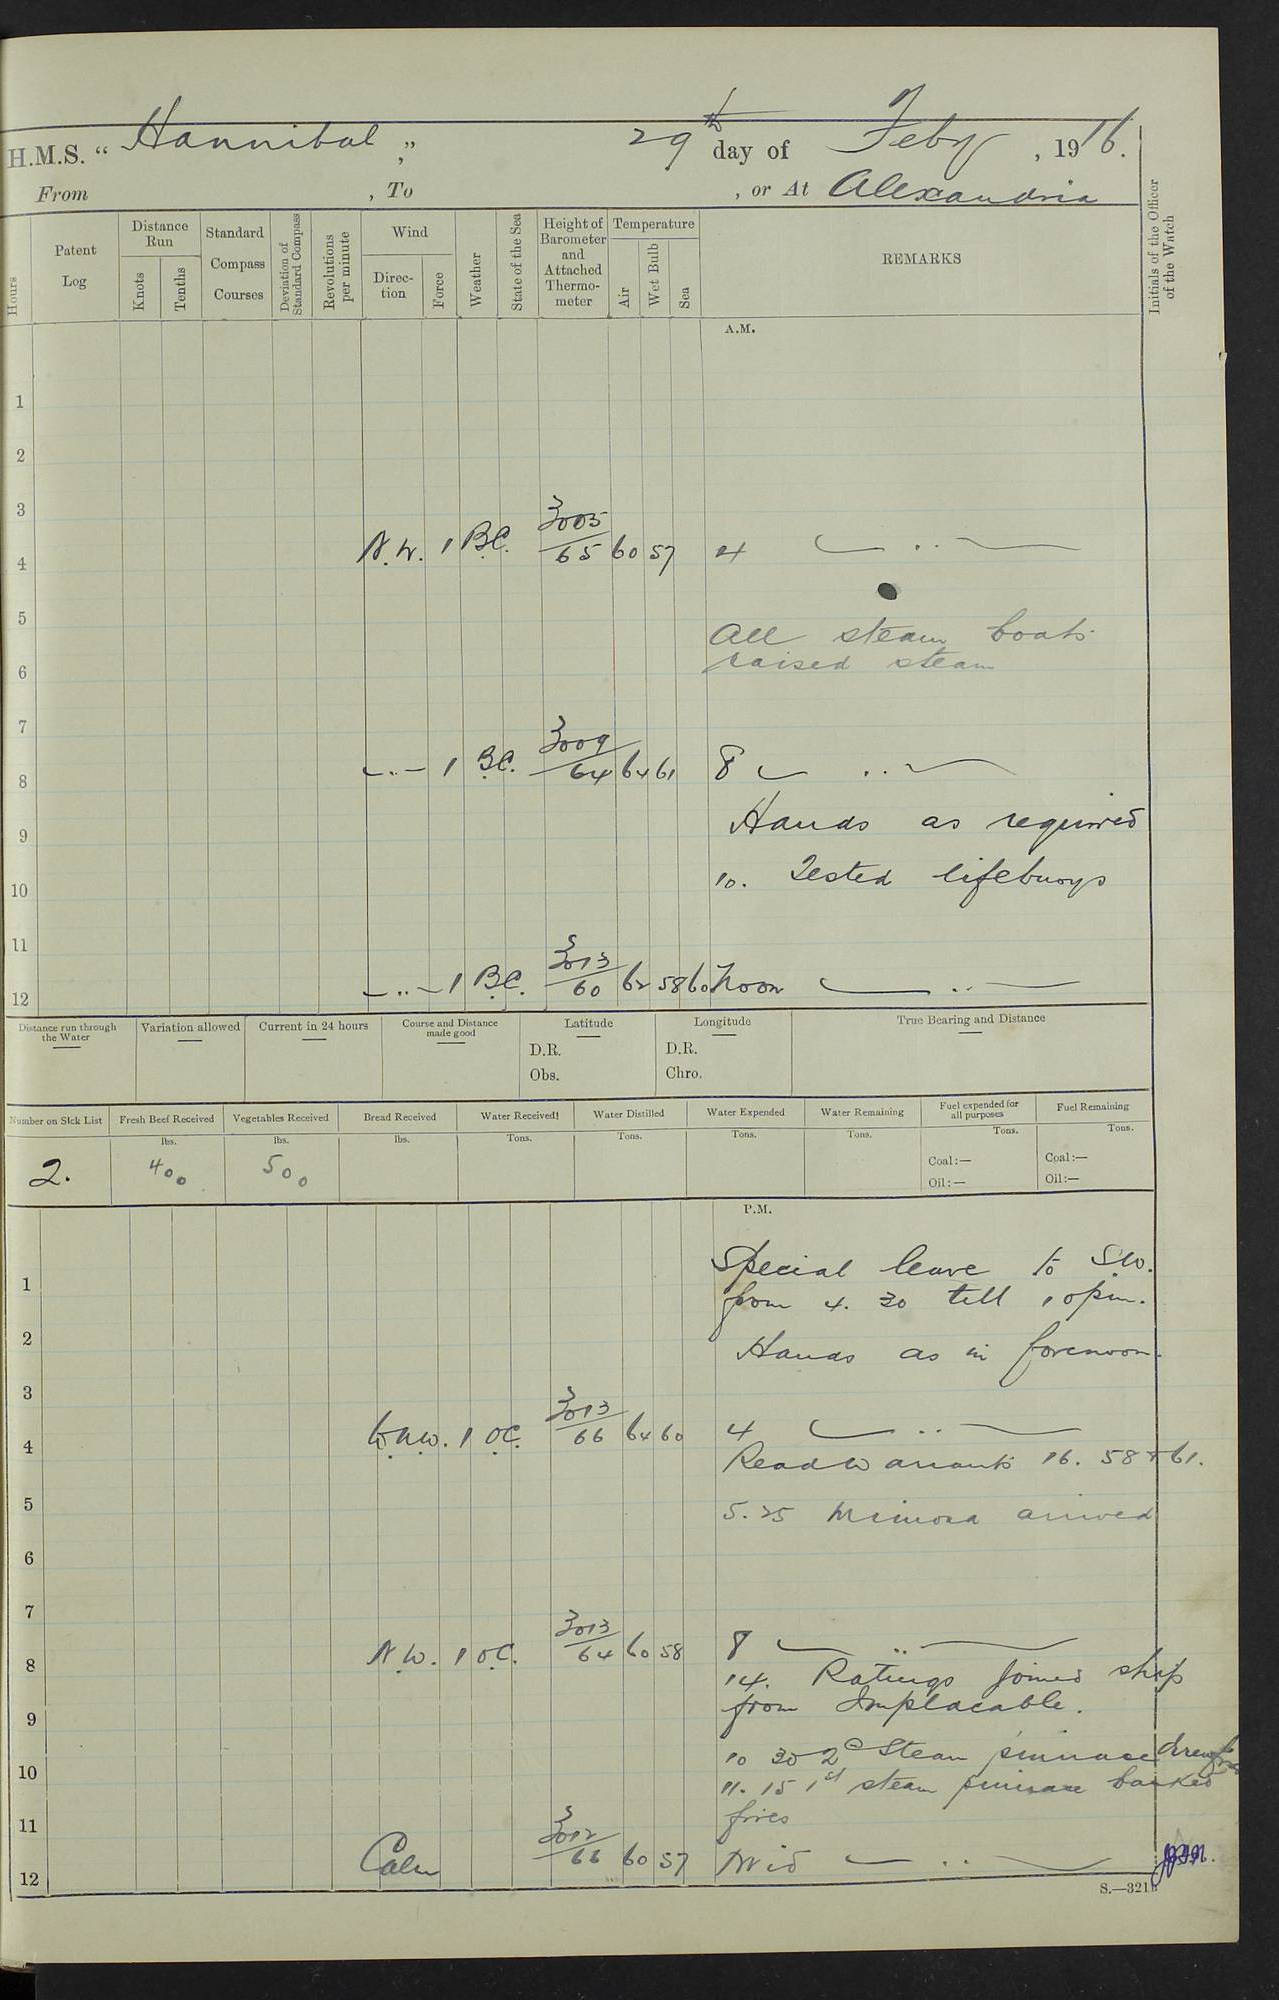 H.M.S. “ Hannibal ,” 29th day of Feby , 1916.
From , To , or At Alexandria
Hours
Patent Log
Distance Run
Knots
Tenths
Standard Compass Courses
Deviation of Standard Compass
Revolutions per minute
Wind
Direc- tion
Force
Weather
State of the Sea
Height of Barometer and Attached Thermo- meter
Temperature
Air
Wet Bulb
Sea
REMARKS
Initials of the Officer of the Watch
A.M.
1
2
3
4 N.W. 1 B.C. 3005/65 60 57 4 〃
5
All steam boats
6 raised steam
7
8 〃 1 B.C. 3009/64 64 61 8 〃
9 Hands as required
10 10. Tested lifebuoys
11
12 〃 1 B.C. 3013/60 62 58 60 Noon 〃
Distance run through the Water
Variation allowed
Current in 24 hours
Course and Distance made good
Latitude
D.R.
Obs.
Longitude
D.R.
Chro.
True Bearing and Distance
Number on Sick List
Fresh Beef Received
Vegetables Received
Bread Received
Water Received
Water Distilled
Water Expended
Water Remaining
Fuel expended for all purposes
Fuel Remaining
lbs. lbs. lbs. Tons. Tons. Tons. Tons. Tons. Tons.
2. 400 500
Coal:— Coal:—
Oil:— Oil:—
P.M.
Special leave to
1 from 4. 30 till 10pm.
2 Hands as in forenoon.
3
4 W.N.W. 1 O.C. 3013/66 64 60 4 〃
Read Warrants 16. 58 + 61.
5 5. 25 Mimosa arrived
6
7
8 N.W. 1 O.C. 3013/64 60 58 8 〃
14. Ratings joined ship
9 from Implacable.
10 10 30 2d Steam pinnace drew fires
11. 15 1st steam pinnace banked
11 fires
12 Calm 3012/66 60 57 Mid 〃
S.—321b